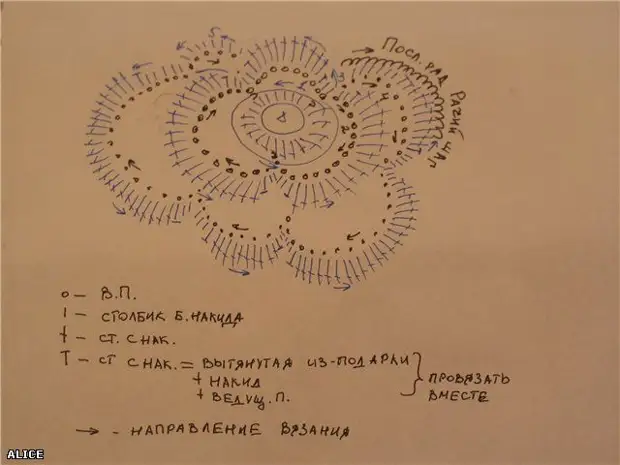 8
1
2
3
4
5
ПОСЛ. РЯД РАЧИЙ ШАГ
о - В.П.
I - СТОЛБИК Б. НАКИДА
† - СТ. С НАК.
Т - СТ С НАК. = ВЫТЯНУТАЯ ИЗ-ПОД АРКИ
+ НАКИД
+ ВЕДУЩ. П.
ПРОВЯЗАТЬ
ВМЕСТЕ
→ - НАПРАВЛЕНИЕ ВЯЗАНИЯ
ALICE